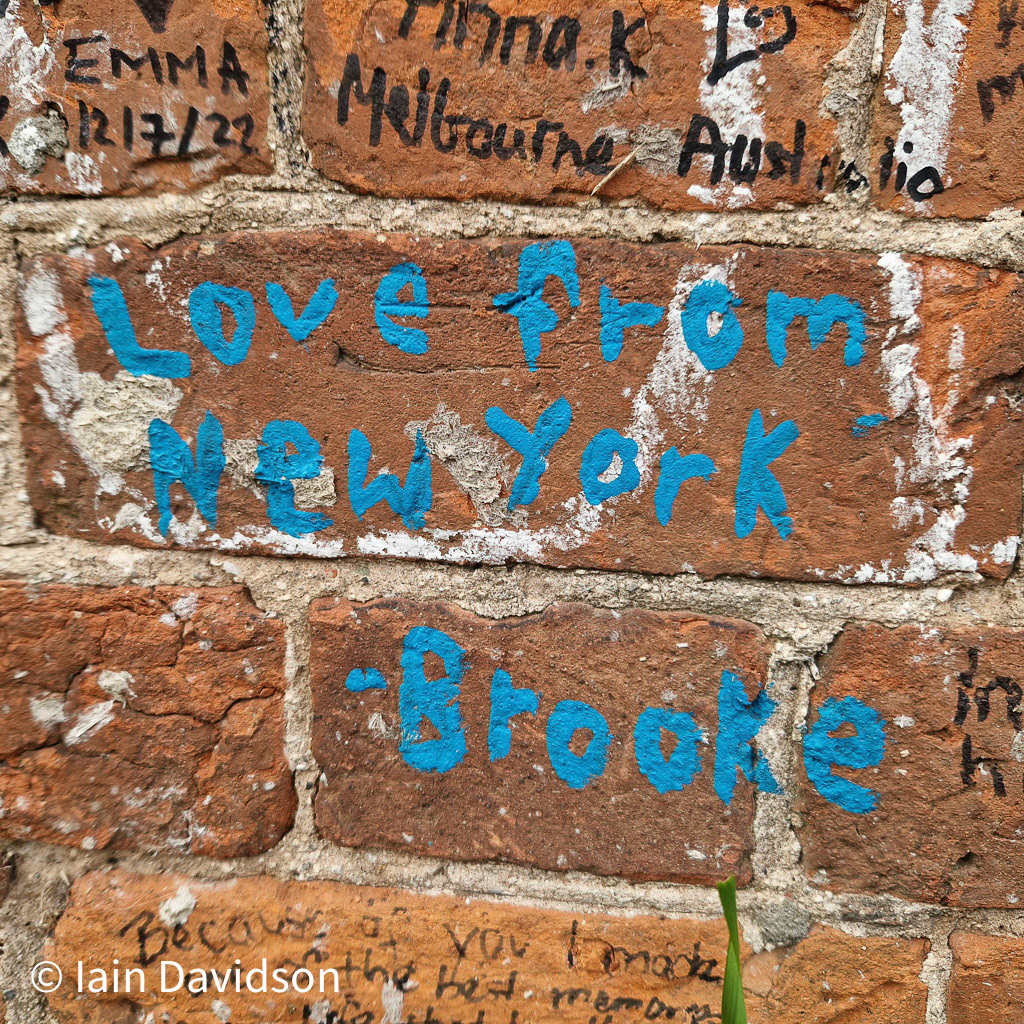 EMMA
12/7/22
Anna.K
Melbourne Australia
Love from
New York -
- Brooke
in
h
Because of you I made
the best memory
© Iain Davidson